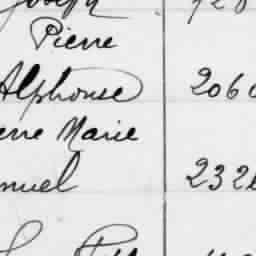 Joseph
Pierre
Alphonse 206
erre Marie
nuel 232